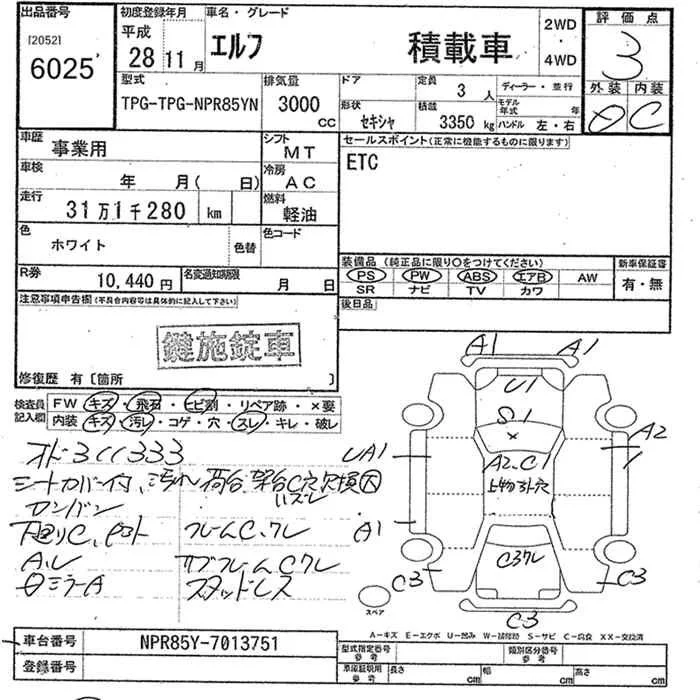 出品番号
[2052]
6025
初度登録年月
平成
28 11月
車名・グレード
エルフ
積載車
2WD
・
4WD
評価点
3
外装 内装
D C
型式
TPG-TPG-NPR85YN
排気量
3000
CC
ドア
形状
セキシャ
定員
3人
積載
3350 kg
ディーラー・並行
モデル年式 年
ハンドル 左・右
車歴
事業用
シフト
MT
車検
年 月( 日)
冷房
AC
走行
31万1千280 km
燃料
軽油
色
ホワイト
色替
色コード
R券
10,440円
名変通知期限
月 日
セールスポイント(正常に機能するものに限ります)
ETC
装備品(純正品に限り〇をつけてください)
新車保証書
PS PW ABS エアB AW
SR ナビ TV カワ
有・無
後日品
注意事項申告欄(不具合内容等は具体的に記入して下さい)
鍵施錠車
修復歴 有〔箇所 〕
検査員記入欄
FW キズ・飛石・ヒビ割・リペア跡・×要
内装 キズ・汚レ・コゲ・穴・スレ・キレ・破レ
オド311333
シートカバー付、汚れ 荷台 架台C穴欠損大
ハズレ
カンバン
下廻りC、 フレームC、クレ
A、レ サブフレームCクレ
ミラーA スタッドレス
A1 A1
U1
S1
×
UA1
A2
A2、C1
上物 穴
A1
C3クレ
C3 C3
C3
スペア
A-キズ E-エクボ U-凹み W-補修跡 S-サビ C-腐食 XX-交換済
車台番号
NPR85Y-7013751
登録番号
型式指定番号
参考
類別区分番号
参考
車庫証明用
参考
長さ cm 幅 cm 高さ cm